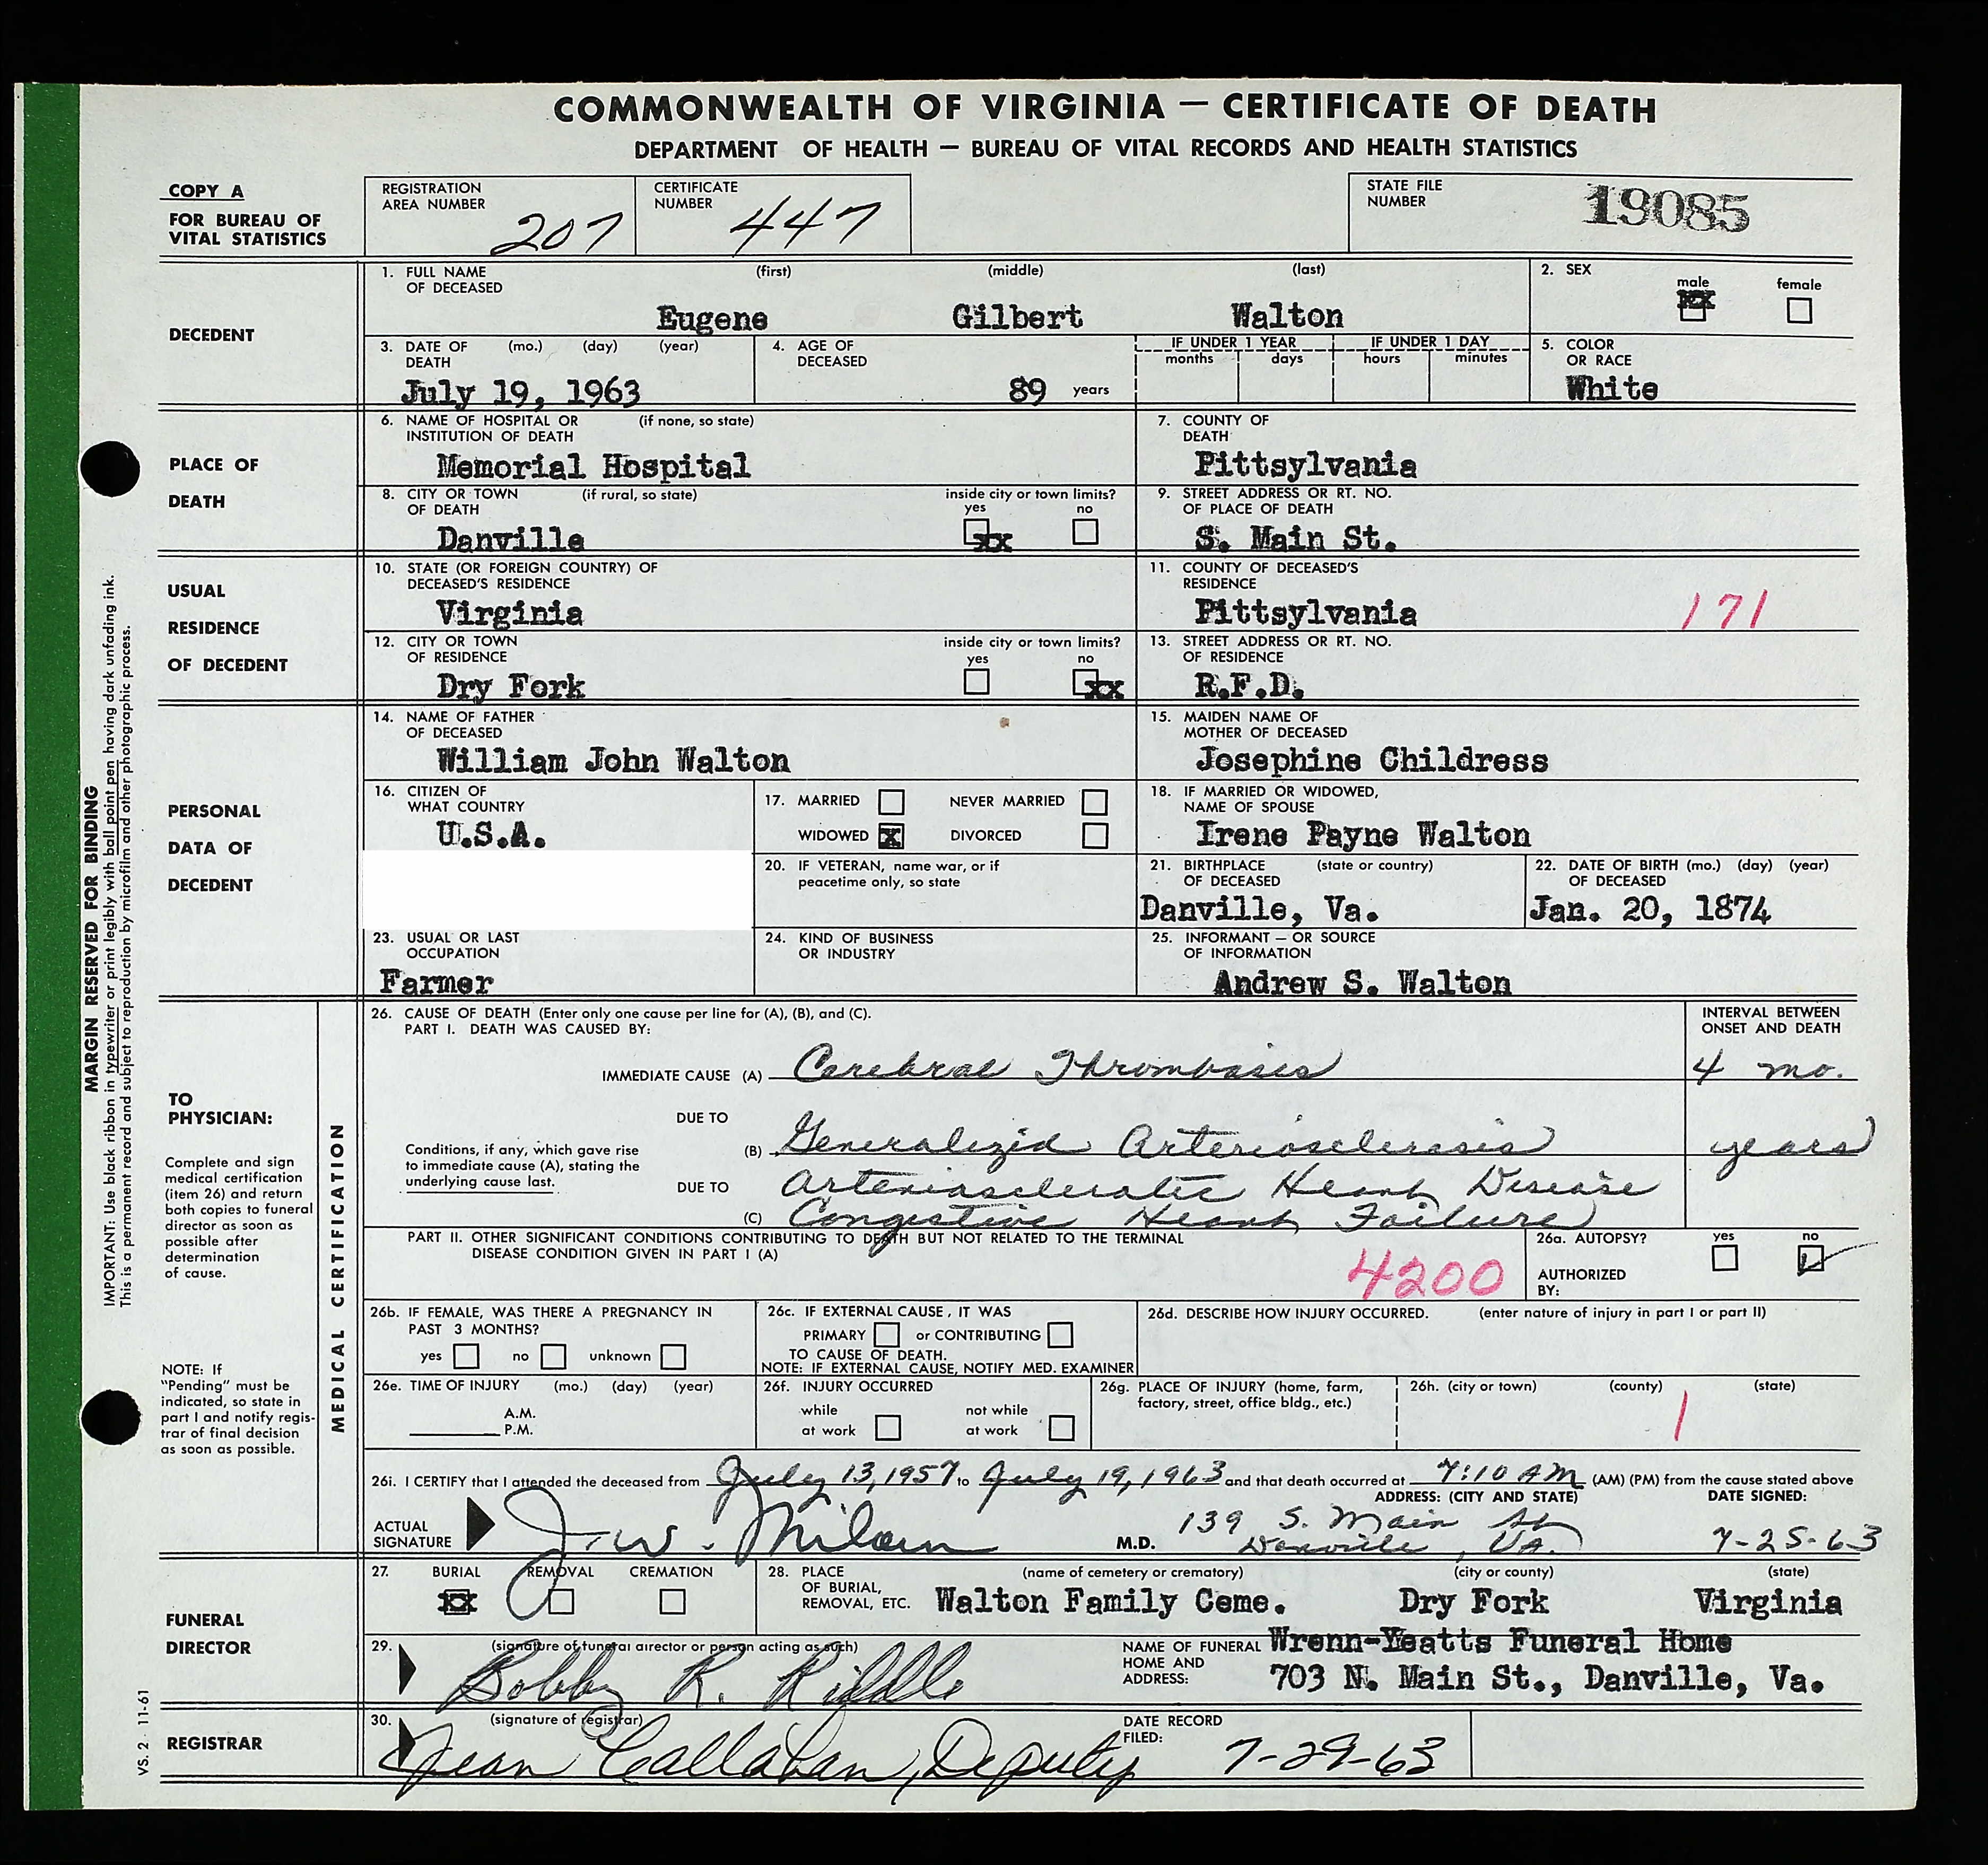 COMMONWEALTH OF VIRGINIA — CERTIFICATE OF DEATH
DEPARTMENT OF HEALTH — BUREAU OF VITAL RECORDS AND HEALTH STATISTICS
COPY A
FOR BUREAU OF
VITAL STATISTICS
REGISTRATION
AREA NUMBER
207
CERTIFICATE
NUMBER
447
STATE FILE
NUMBER
19085
DECEDENT
1. FULL NAME (first) (middle) (last)
OF DECEASED
Eugene Gilbert Walton
2. SEX
male female
XX
3. DATE OF (mo.) (day) (year)
DEATH
July 19, 1963
4. AGE OF
DECEASED
89 years
IF UNDER 1 YEAR IF UNDER 1 DAY
months days hours minutes
5. COLOR
OR RACE
White
PLACE OF
DEATH
6. NAME OF HOSPITAL OR (if none, so state)
INSTITUTION OF DEATH
Memorial Hospital
7. COUNTY OF
DEATH
Pittsylvania
8. CITY OR TOWN (if rural, so state) inside city or town limits?
OF DEATH yes no
Danville xx
9. STREET ADDRESS OR RT. NO.
OF PLACE OF DEATH
S. Main St.
USUAL
RESIDENCE
OF DECEDENT
10. STATE (OR FOREIGN COUNTRY) OF
DECEASED'S RESIDENCE
Virginia
11. COUNTY OF DECEASED'S
RESIDENCE
Pittsylvania 171
12. CITY OR TOWN inside city or town limits?
OF RESIDENCE yes no
Dry Fork xx
13. STREET ADDRESS OR RT. NO.
OF RESIDENCE
R.F.D.
PERSONAL
DATA OF
DECEDENT
14. NAME OF FATHER
OF DECEASED
William John Walton
15. MAIDEN NAME OF
MOTHER OF DECEASED
Josephine Childress
16. CITIZEN OF
WHAT COUNTRY
U.S.A.
17. MARRIED NEVER MARRIED
WIDOWED X DIVORCED
18. IF MARRIED OR WIDOWED,
NAME OF SPOUSE
Irene Payne Walton
20. IF VETERAN, name war, or if
peacetime only, so state
21. BIRTHPLACE (state or country)
OF DECEASED
Danville, Va.
22. DATE OF BIRTH (mo.) (day) (year)
OF DECEASED
Jan. 20, 1874
23. USUAL OR LAST
OCCUPATION
Farmer
24. KIND OF BUSINESS
OR INDUSTRY
25. INFORMANT — OR SOURCE
OF INFORMATION
Andrew S. Walton
TO
PHYSICIAN:
Complete and sign
medical certification
(item 26) and return
both copies to funeral
director as soon as
possible after
determination
of cause.
NOTE: If
"Pending" must be
indicated, so state in
part I and notify regis-
trar of final decision
as soon as possible.
MEDICAL CERTIFICATION
26. CAUSE OF DEATH (Enter only one cause per line for (A), (B), and (C).
PART I. DEATH WAS CAUSED BY:
INTERVAL BETWEEN
ONSET AND DEATH
IMMEDIATE CAUSE (A) Cerebral Thrombosis 4 mo.
DUE TO
(B) Generalized Arteriosclerosis years
Conditions, if any, which gave rise
to immediate cause (A), stating the
underlying cause last.
DUE TO Arteriosclerotic Heart Disease
(C) Congestive Heart Failure
PART II. OTHER SIGNIFICANT CONDITIONS CONTRIBUTING TO DEATH BUT NOT RELATED TO THE TERMINAL
DISEASE CONDITION GIVEN IN PART I (A)
4200
26a. AUTOPSY? yes no
AUTHORIZED
BY:
26b. IF FEMALE, WAS THERE A PREGNANCY IN
PAST 3 MONTHS?
yes no unknown
26c. IF EXTERNAL CAUSE, IT WAS
PRIMARY or CONTRIBUTING
TO CAUSE OF DEATH.
NOTE: IF EXTERNAL CAUSE, NOTIFY MED. EXAMINER
26d. DESCRIBE HOW INJURY OCCURRED. (enter nature of injury in part I or part II)
26e. TIME OF INJURY (mo.) (day) (year)
A.M.
P.M.
26f. INJURY OCCURRED
while not while
at work at work
26g. PLACE OF INJURY (home, farm,
factory, street, office bldg., etc.)
26h. (city or town) (county) (state)
1
26i. I CERTIFY that I attended the deceased from July 13, 1957 to July 19, 1963 and that death occurred at 7:10 AM (AM) (PM) from the cause stated above
ADDRESS: (CITY AND STATE) DATE SIGNED:
ACTUAL
SIGNATURE
J. W. Milam M.D. 139 S. Main St
Danville, Va. 7-25-63
FUNERAL
DIRECTOR
27. BURIAL REMOVAL CREMATION
XX
28. PLACE (name of cemetery or crematory) (city or county) (state)
OF BURIAL,
REMOVAL, ETC. Walton Family Ceme. Dry Fork Virginia
29. (signature of funeral director or person acting as such)
Bobby R. Riddle
NAME OF FUNERAL
HOME AND
ADDRESS:
Wrenn-Yeatts Funeral Home
703 N. Main St., Danville, Va.
REGISTRAR
30. (signature of registrar)
Jean Callahan, Deputy
DATE RECORD
FILED: 7-29-63
MARGIN RESERVED FOR BINDING
IMPORTANT: Use black ribbon in typewriter or print legibly with ball point pen having dark unfading ink.
This is a permanent record and subject to reproduction by microfilm and other photographic process.
VS. 2 11-61